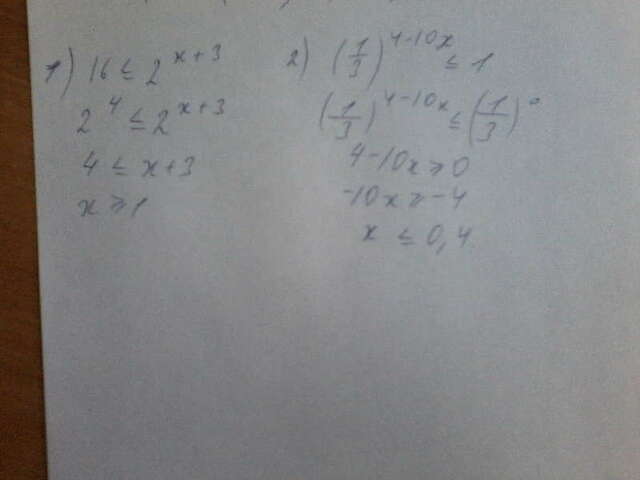 1) 16 ≤ 2^(x+3)
2^4 ≤ 2^(x+3)
4 ≤ x+3
x ≥ 1
2) (1/3)^(4-10x) ≤ 1
(1/3)^(4-10x) ≤ (1/3)^0
4-10x ≥ 0
-10x ≥ -4
x ≤ 0,4